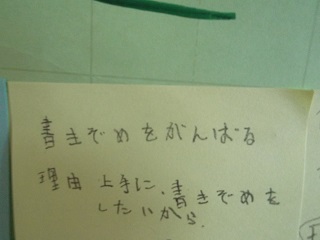 書きぞめをがんばる
理由 上手に、書きぞめを
したいから。